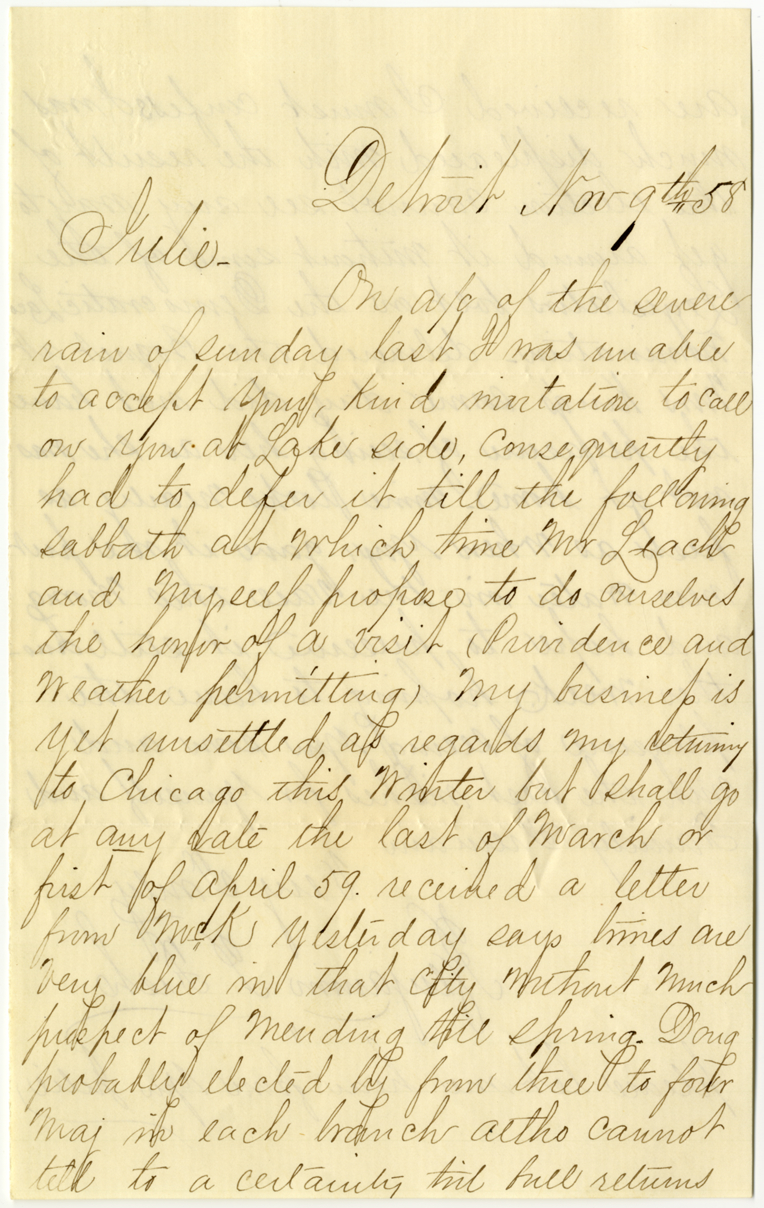 Detroit Nov 9th 58
Julie-
On a/c of the severe
rain of sunday last I was unable
to accept your, kind invitation to call
on you at Lake side, consequently
had to defer it till the following
sabbath at which time Mr Leach
and myself propose to do ourselves
the honor of a visit (Providence and
Weather permitting) My business is
yet unsettled as regards my returning
to Chicago this Winter but shall go
at any rate the last of March or
first of April 59. received a letter
from McK yesterday says times are
very blue in that City without much
prospect of mending till spring. Doug
probably elected by from three to four
Maj in each branch altho cannot
tell to a certainty til full returns